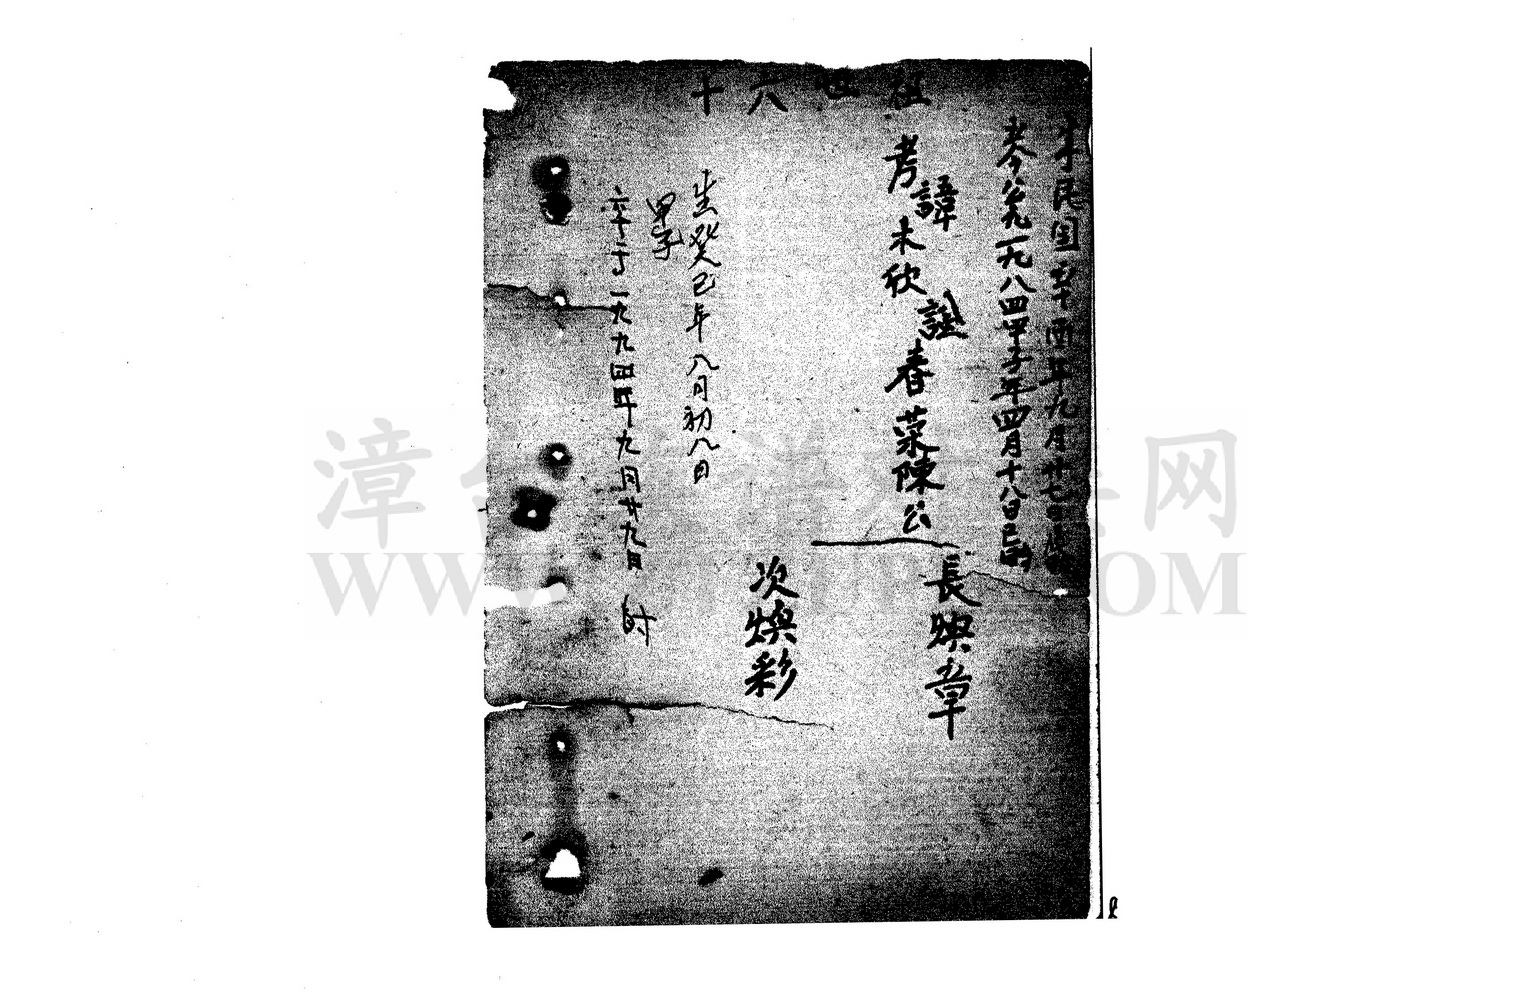 十六世祖
民國 年九月廿七日
公元一九八四甲子年四月十八日巳時
考諱木欣諡春菜陳公
長煥章
次煥彩
生癸巳年八月初八日
甲子
卒于一九九四年九月廿九日 時
漳台族谱对接网
WWW. .COM